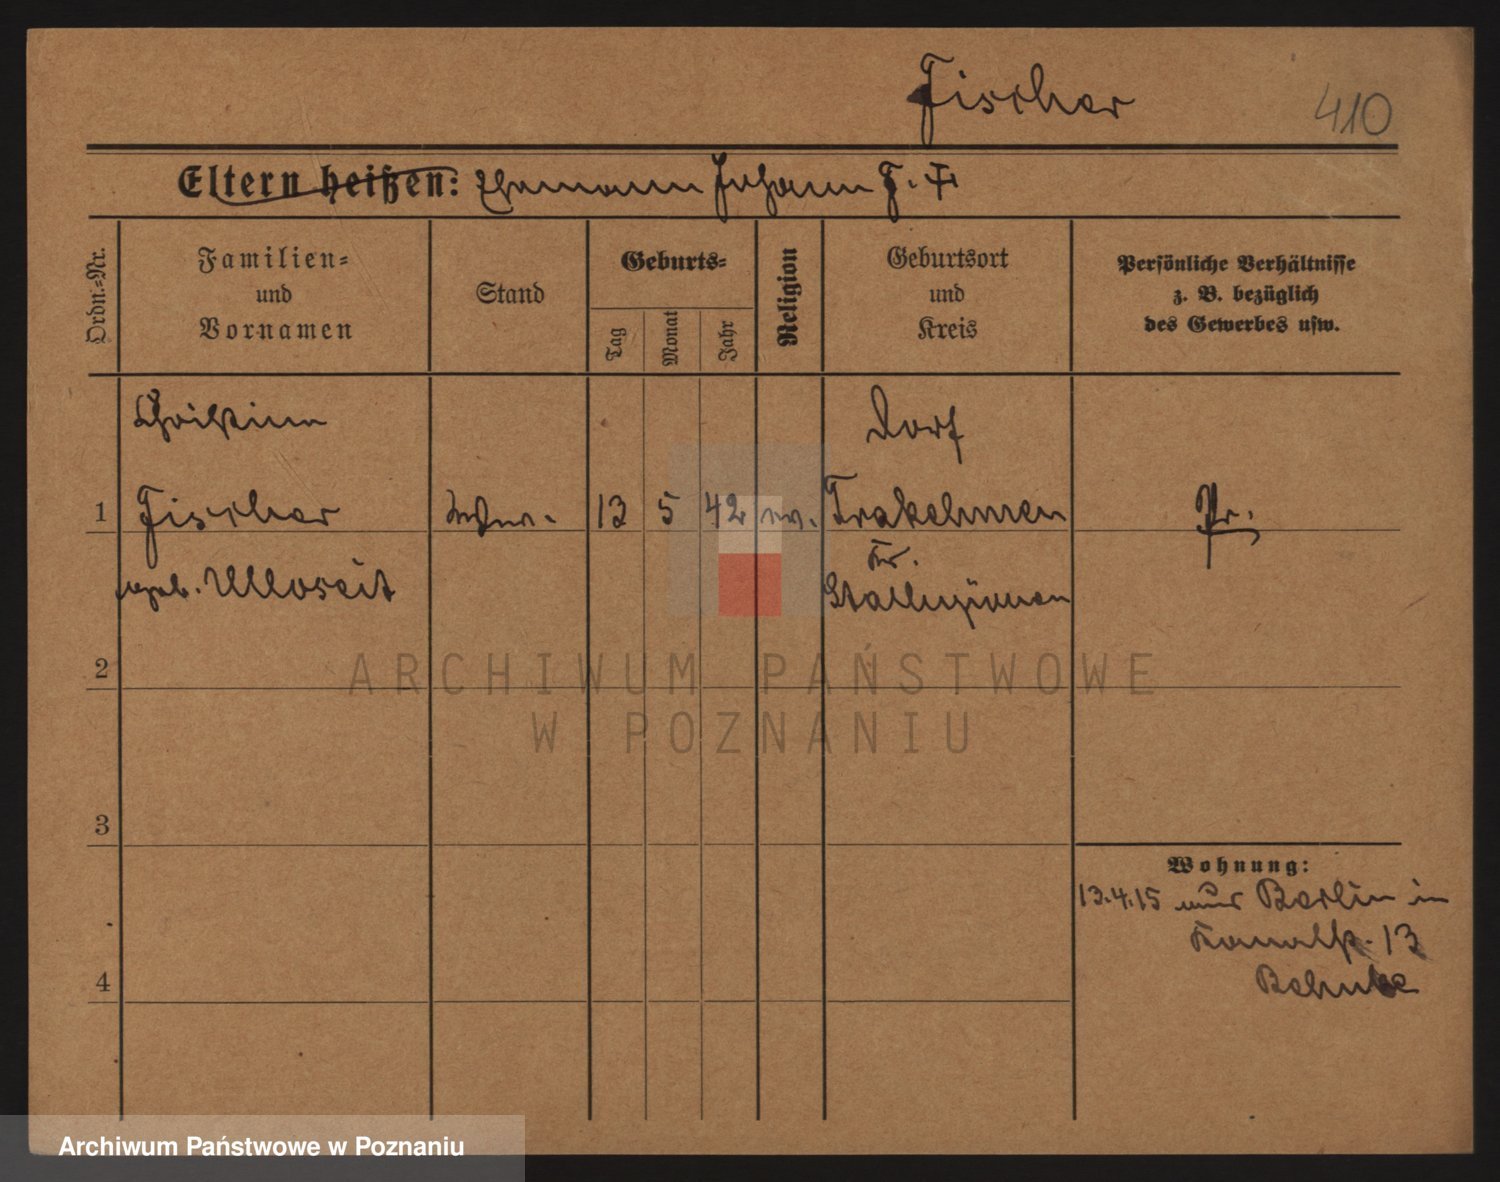 Fischer
410
Eltern heißen: Ehemann Johann F. ‡
Ordn.-Nr.
Familien-
und
Vornamen
Stand
Geburts-
Tag
Monat
Jahr
Religion
Geburtsort
und
Kreis
Persönliche Verhältnisse
z. B. bezüglich
des Gewerbes usw.
Dorf
1 Fischer 13 5 42 ev. Trakehnen Pr.
geb. Kr.
2
3
4
Wohnung:
13.4.15 aus Berlin in
Kanalstr. 13
Behnke
ARCHIWUM PAŃSTWOWE
W POZNANIU
Archiwum Państwowe w Poznaniu